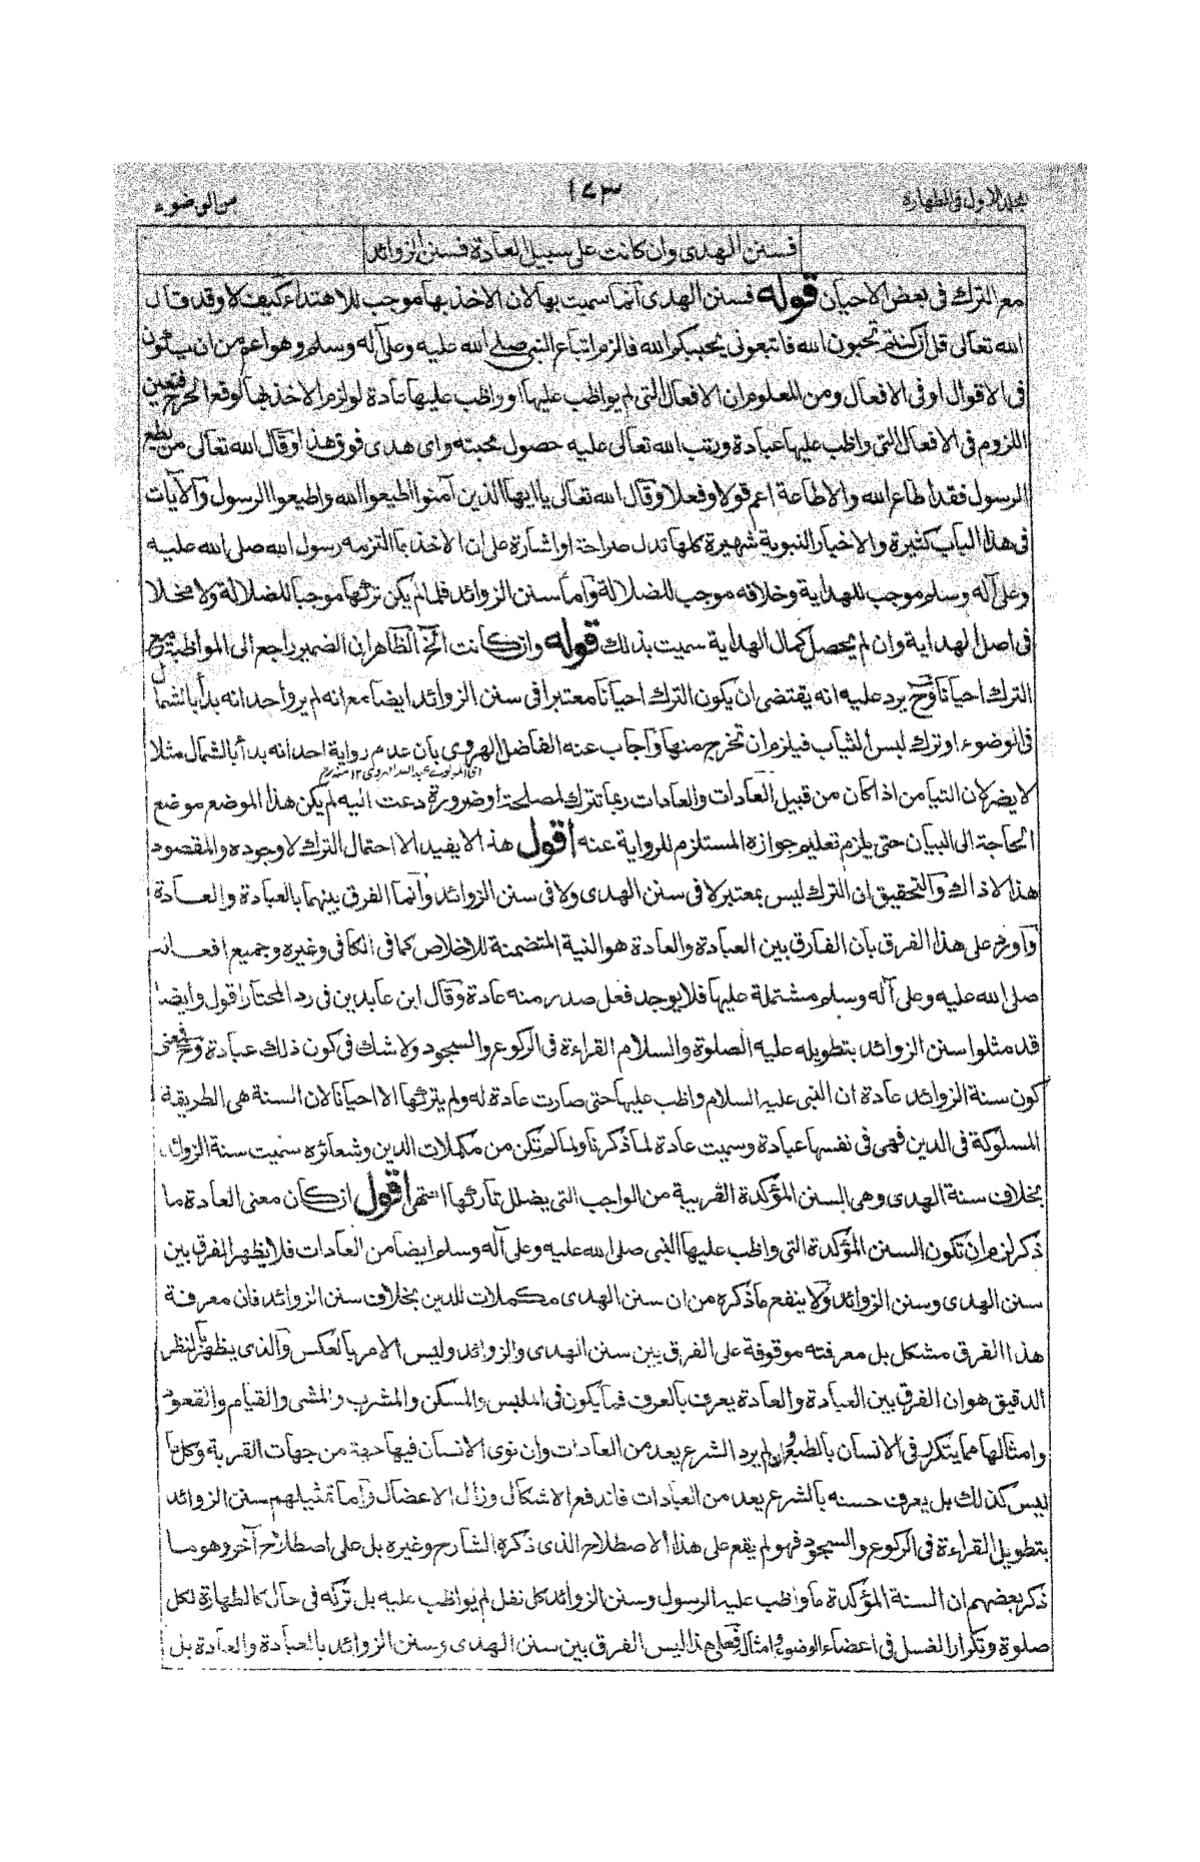 المجلد الاول فى الطهارة
١٧٣
من الوضوء
فسنن الهدى وان كانت على سبيل العادة فسنن الزوائد
مع الترك فى بعض الاحيان قوله فسنن الهدى انما سميت بها لان الاخذ بها موجب للاهتداء كيف لا وقد قال
الله تعالى قل ان كنتم تحبون الله فاتبعونى يحببكم الله فالزم اتباع النبى صلى الله عليه وعلى آله وسلم وهو اعم من ان يكون
فى الاقوال او فى الافعال ومن المعلوم ان الافعال التى لم يواظب عليها او واظب عليها عادة لو لزم الاخذ بها لوقع الحرج فتعين
اللزوم فى الافعال التى واظب عليها عبادة ورتب الله تعالى عليه حصول محبته واى هدى فوق هذا وقال الله تعالى من يطع
الرسول فقد اطاع الله والاطاعة اعم قولا وفعلا وقال الله تعالى يا ايها الذين آمنوا اطيعوا الله واطيعوا الرسول والآيات
فى هذا الباب كثيرة والاخبار النبوية شهيرة كلها تدل صراحة او اشارة على ان الاخذ بما التزمه رسول الله صلى الله عليه
وعلى آله وسلم موجب للهداية وخلافه موجب للضلالة واما سنن الزوائد فلما لم يكن تركها موجبا للضلالة ولا مخلا
فى اصل الهداية وان لم يحصل كمال الهداية سميت بذلك قوله وان كانت الخ الظاهر ان الضمير راجع الى المواظبة مع
الترك احيانا وح يرد عليه انه يقتضى ان يكون الترك احيانا معتبرا فى سنن الزوائد ايضا مع انه لم يرو احد انه بدأ بالشمال
فى الوضوء او ترك لبس الثياب فيلزم ان تخرج منها واجاب عنه الفاضل الهروى بان عدم رواية احد انه بدأ بالشمال مثلا
اى المولوى عبد الله الهروى ١٢ منه
لا يضر لان التيامن اذا كان من قبيل العادات والعادات ربما تترك لمصلحة او ضرورة دعت اليه لم يكن هذا الموضع موضع
الحاجة الى البيان حتى يلزم تعليم جوازه المستلزم للرواية عنه اقول هذا لا يفيد الا احتمال الترك لا وجوده والمقصود
هذا لا ذاك والتحقيق ان الترك ليس بمعتبر لا فى سنن الهدى ولا فى سنن الزوائد وانما الفرق بينهما بالعبادة والعادة
واورد على هذا الفرق بان الفارق بين العبادة والعادة هو النية المتضمنة للاخلاص كما فى الكافى وغيره وجميع افعاله
صلى الله عليه وعلى آله وسلم مشتملة عليها فلا يوجد فعل صدر منه عادة وقال ابن عابدين فى رد المحتار اقول وايضا
قد مثلوا سنن الزوائد بتطويله عليه الصلوة والسلام القراءة فى الركوع والسجود ولا شك فى كون ذلك عبادة وح فمعنى
كون سنة الزوائد عادة ان النبى عليه السلام واظب عليها حتى صارت عادة له ولم يتركها الا احيانا لان السنة هى الطريقة
المسلوكة فى الدين فهى فى نفسها عبادة وسميت عادة لما ذكرنا ولما لم تكن من مكملات الدين وشعائره سميت سنة الزوائد
بخلاف سنة الهدى وهى السنن المؤكدة القريبة من الواجب التى يضلل تاركها انتهى اقول ان كان معنى العادة ما
ذكر لزم ان تكون السنن المؤكدة التى واظب عليها النبى صلى الله عليه وعلى آله وسلم ايضا من العادات فلا يظهر الفرق بين
سنن الهدى وسنن الزوائد ولا ينفع ما ذكره من ان سنن الهدى مكملات للدين بخلاف سنن الزوائد فان معرفة
هذا الفرق مشكل بل معرفته موقوفة على الفرق بين سنن الهدى والزوائد وليس الامر بالعكس والذى يظهر بالنظر
الدقيق هو ان الفرق بين العبادة والعادة يعرف بالعرف فما يكون فى الملبس والمسكن والمشرب والمشى والقيام والقعود
وامثالها مما يتكرر فى الانسان بالطبع وان لم يرد الشرع يعد من العادات وان نوى الانسان فيها جهة من جهات القربة وكل ما
ليس كذلك بل يعرف حسنه بالشرع يعد من العبادات فاندفع الاشكال وزال الاعضال واما تمثيلهم سنن الزوائد
بتطويل القراءة فى الركوع والسجود فهو لم يقع على هذا الاصطلاح الذى ذكره الشارح وغيره بل على اصطلاح آخر وهو ما
ذكر بعضهم ان السنة المؤكدة ما واظب عليه الرسول وسنن الزوائد كل نفل لم يواظب عليه بل تركه فى حال كالطهارة لكل
صلوة وتكرار الغسل فى اعضاء الوضوء وامثاله فعلى هذا ليس الفرق بين سنن الهدى وسنن الزوائد بالعبادة والعادة بل